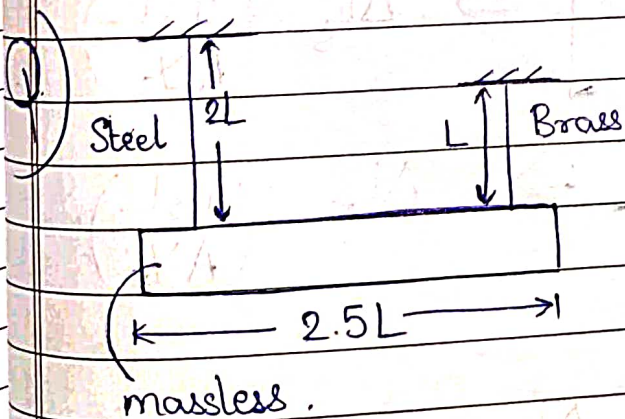 Q
Steel
2L
L
Brass
2.5L
massless.